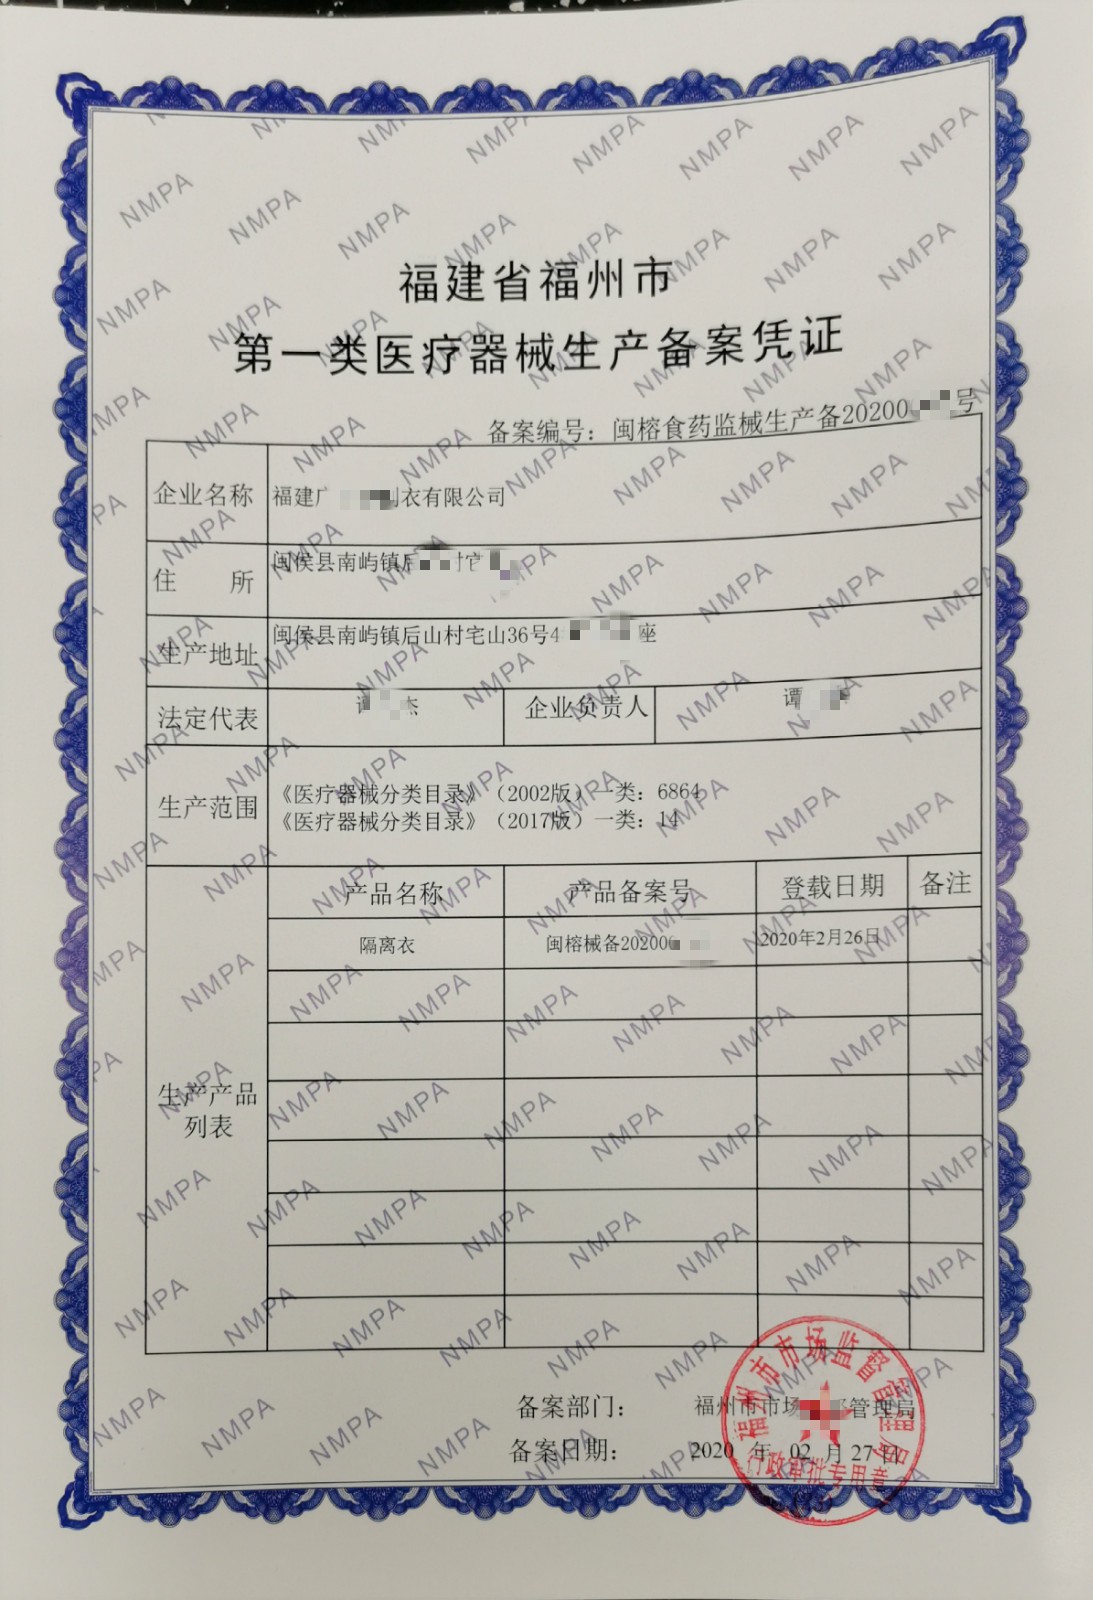 福建省福州市
第一类医疗器械生产备案凭证
备案编号：闽榕食药监械生产备20200 号
企业名称 福建 衣有限公司
住 所 闽侯县南屿镇
生产地址 闽侯县南屿镇后山村宅山36号4 座
法定代表 杰 企业负责人 谭
生产范围
《医疗器械分类目录》（2002版）一类：6864
《医疗器械分类目录》（2017版）一类：14
生产产品
列表
产品名称 产品备案号 登载日期 备注
隔离衣 闽榕械备20200 2020年2月26日
备案部门： 福州市市场 管理局
备案日期： 2020 年 02 月 27 日
福州市市场监督管理局
行政审批专用章
NMPA